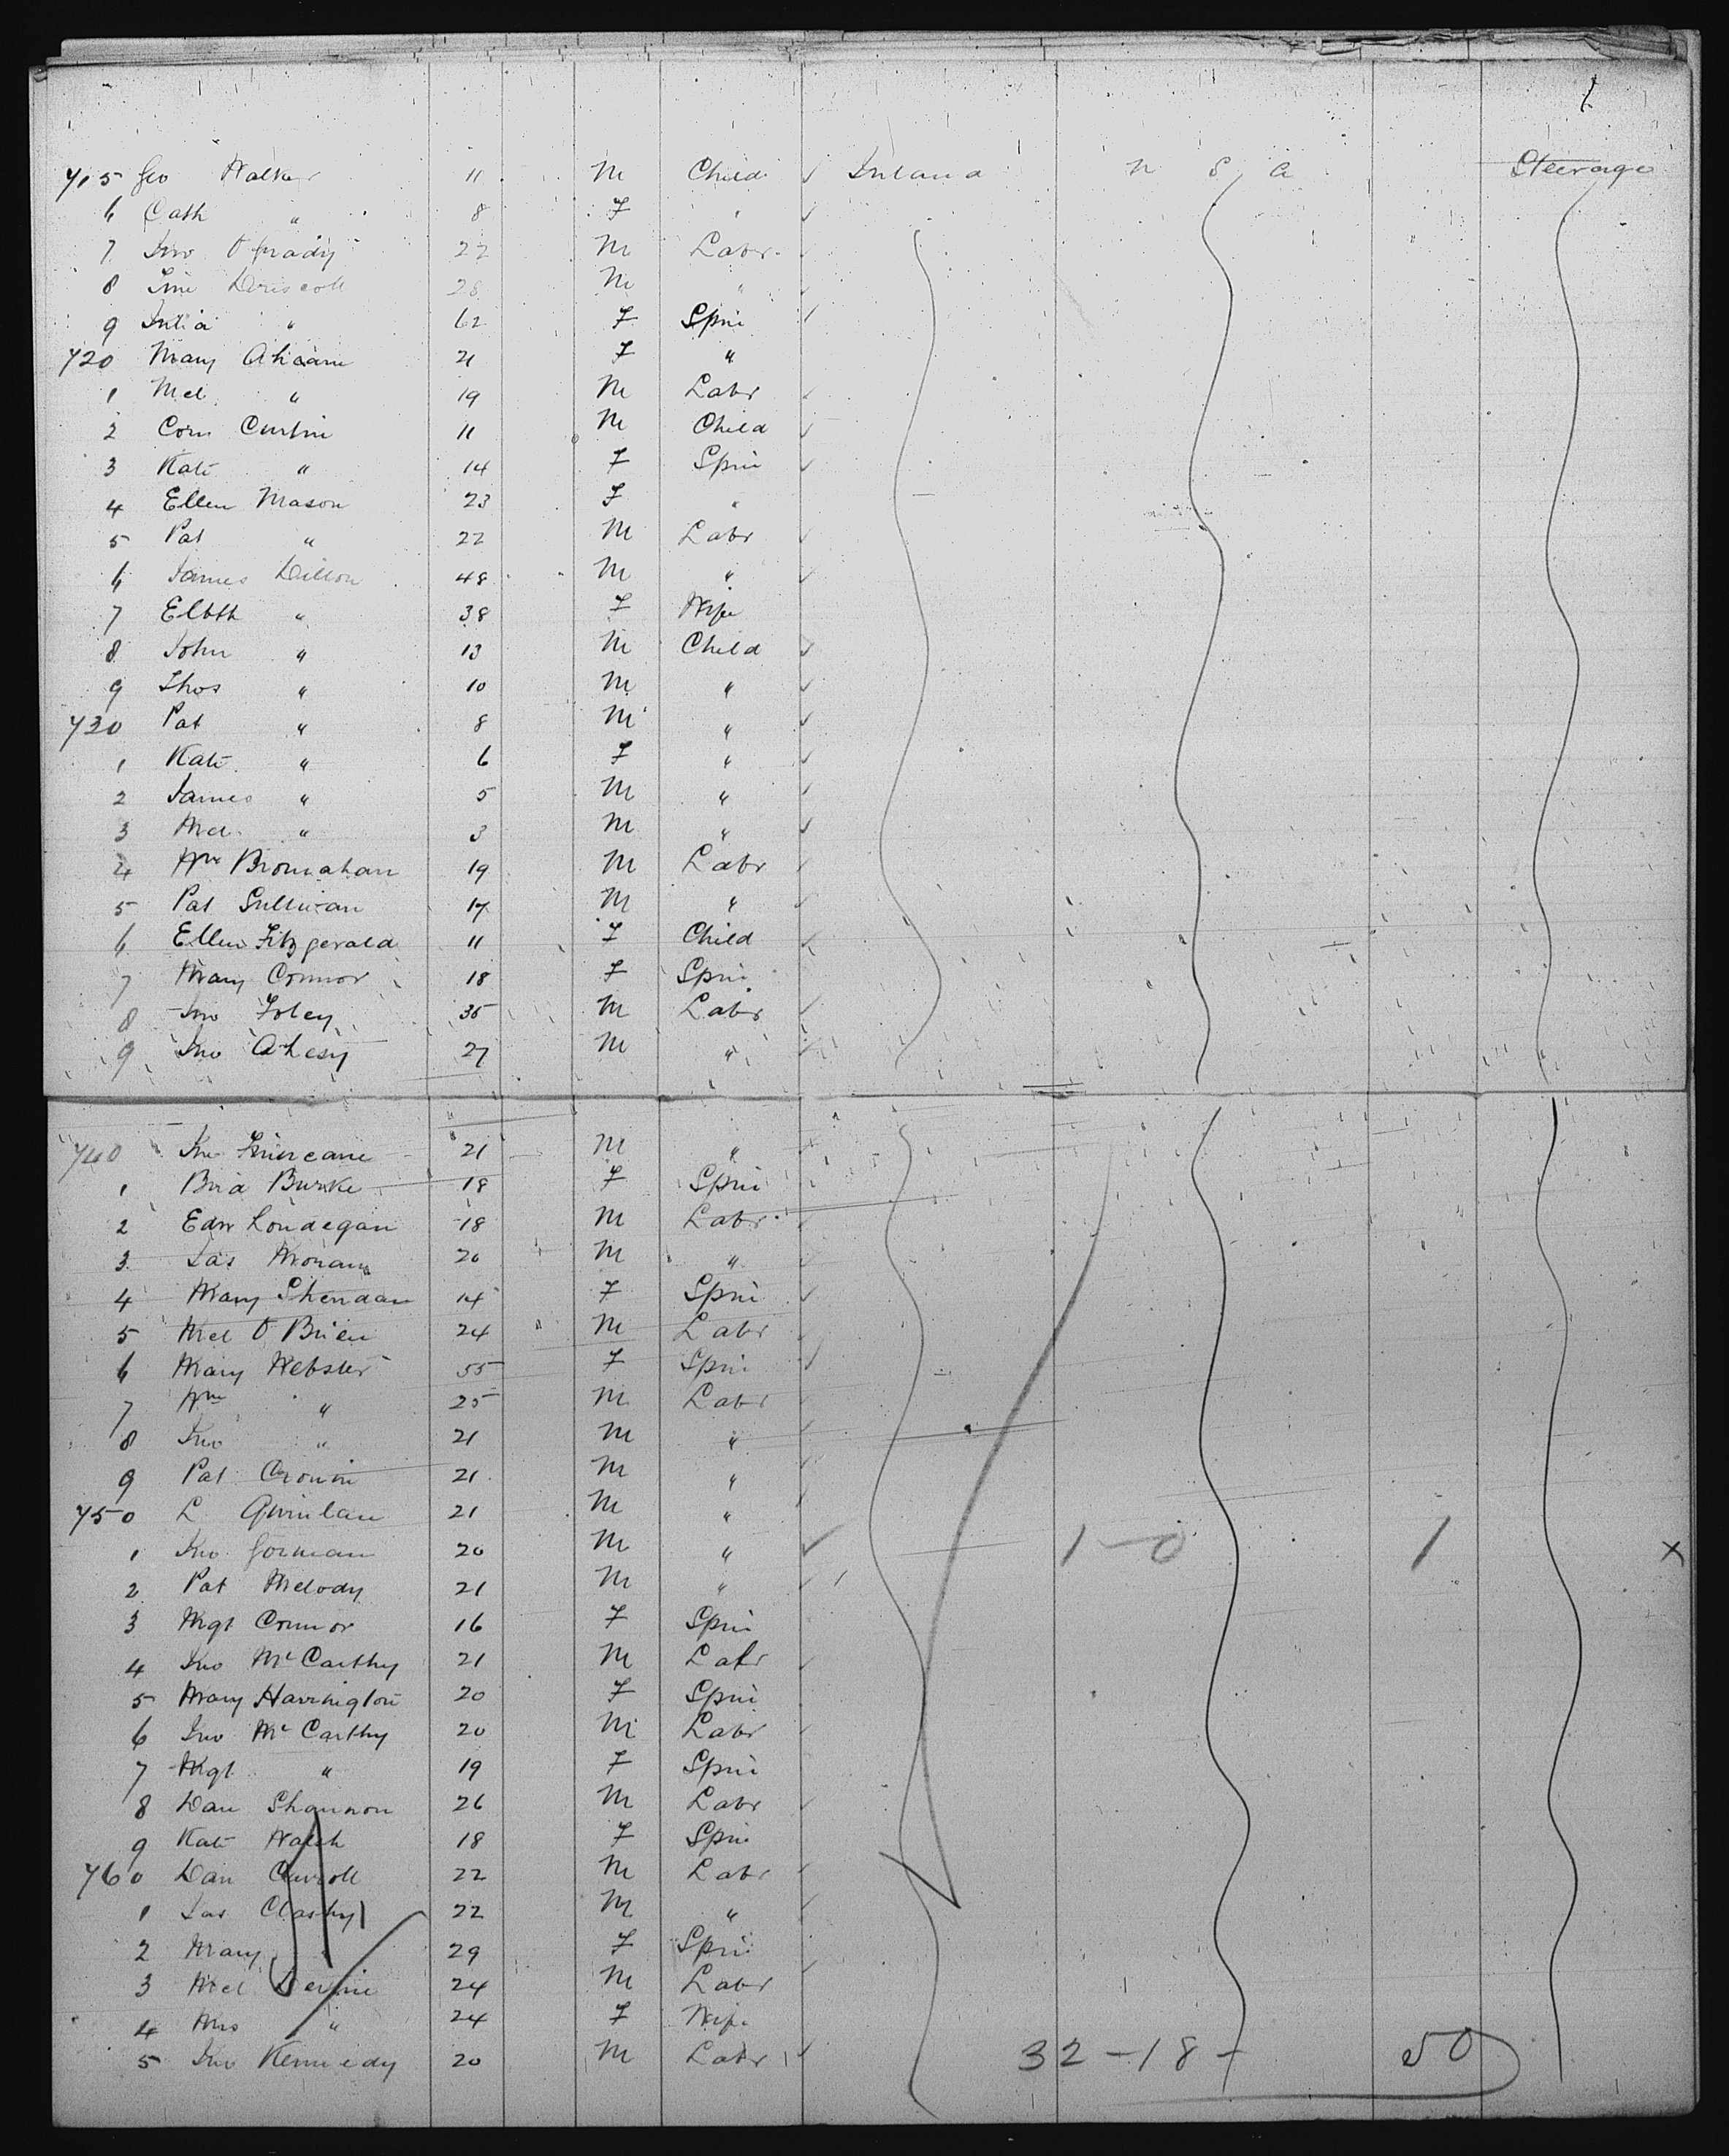 715 Geo Walker 11 M Child Ireland U S A Steerage
6 Cath " 8 F "
7 Jno O Grady 22 M Labr
8 Tim Driscoll 28 M "
9 Julia " 62 F Spin
720 Mary Ahearn 21 F "
1 Mcl " 19 M Labr
2 Corn Curtin 11 M Child
3 Kate " 14 F Spin
4 Ellen Mason 23 F "
5 Pat " 22 M Labr
6 James Dillon 48 M "
7 Elbth " 38 F Wife
8 John " 13 M Child
9 Thos " 10 M "
730 Pat " 8 M "
1 Kate " 6 F "
2 James " 5 M "
3 Mcl " 3 M "
4 Wm Brosnahan 19 M Labr
5 Pat Sullivan 17 M "
6 Ellen Fitzgerald 11 F Child
7 Mary Connor 18 F Spin
8 Jno Foley 35 M Labr
9 Jno 27 M "
740 Jno Finucane 21 M "
1 Brid Burke 18 F Spin
2 Edw Londegan 18 M Labr
3 Jas Moran 20 M "
4 Mary Sheridan 14 F Spin
5 Mcl O Brien 24 M Labr
6 Mary Webster 55 F Spin
7 Wm " 25 M Labr
8 Jno " 21 M "
9 Pat Cronin 21 M "
750 L Quinlan 21 M "
1 Jno Gorman 20 M " 1-0 1 X
2 Pat Melody 21 M "
3 Mgt Connor 16 F Spin
4 Jno McCarthy 21 M Labr
5 Mary Harrington 20 F Spin
6 Jno McCarthy 20 M Labr
7 Mgt " 19 F Spin
8 Dan Shannon 26 M Labr
9 Kate Walsh 18 F Spin
760 Dan Carroll 22 M Labr
1 Jas Clasby 22 M "
2 Mary " 29 F Spin
3 Mcl Devine 24 M Labr
4 Mrs " 24 F Wife
5 Jno Kennedy 20 M Labr 32-18- 50